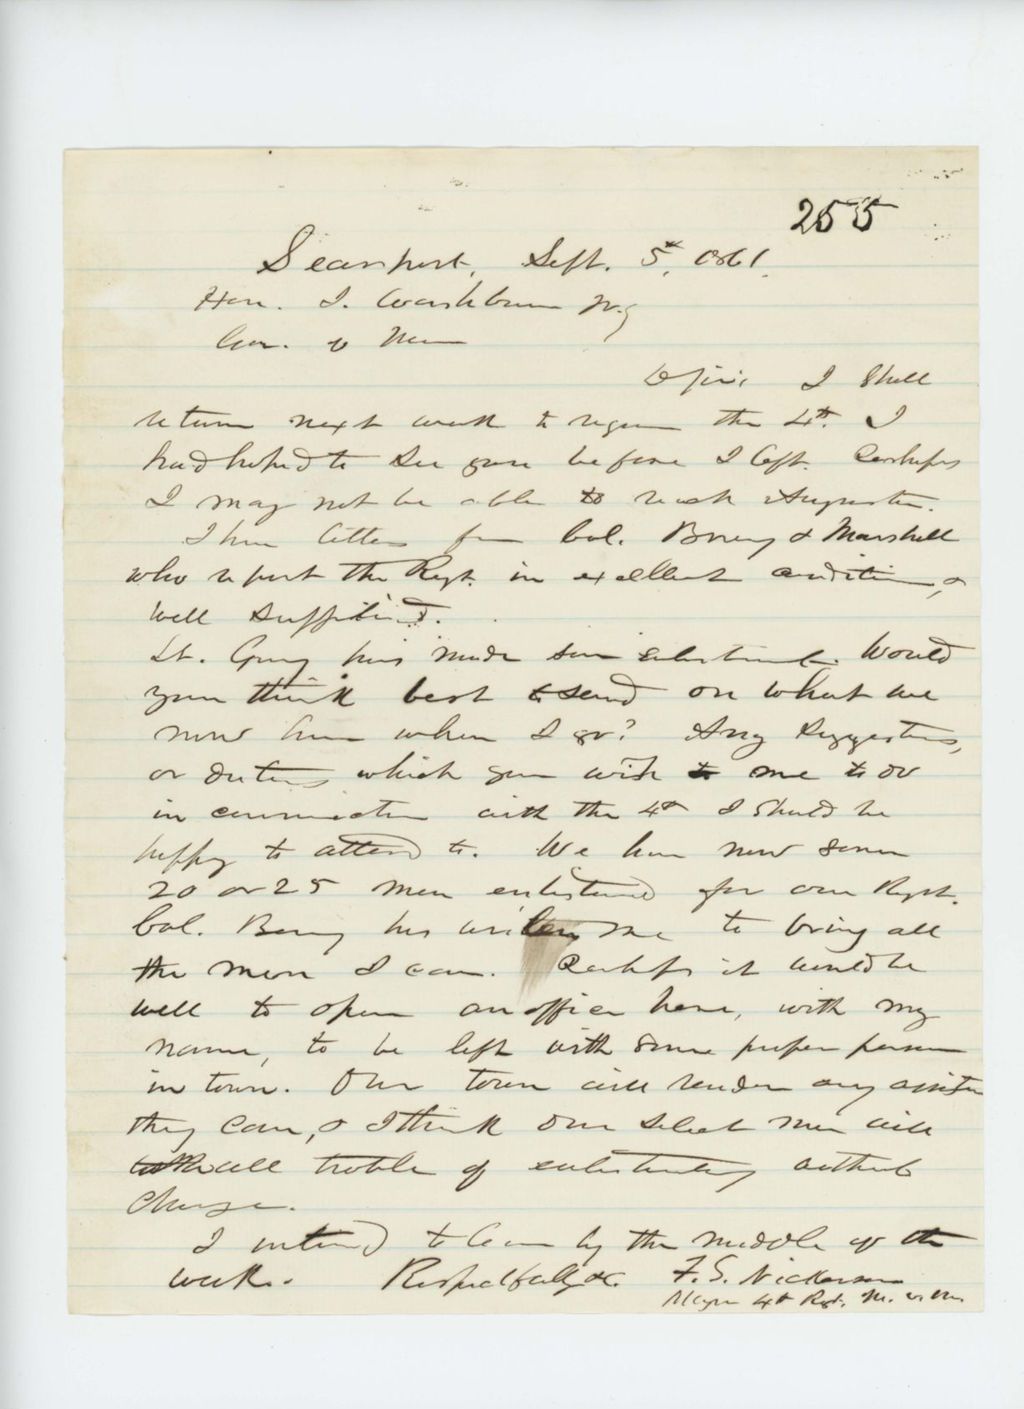 255
Searsport, Sept. 5th, 1861.
Hon. I. Washburn Jr.
Gov. of Maine
Sir: I Shall
return next week to rejoin the 4th. I
had hoped to see you before I left. Perhaps
I may not be able to reach Augusta.
I have letters from Col. Berry & Marshall
who report the Regt. in excellent condition, &
well supplied.
Lt. Gray has made some enlistments. Would
you think best to send on what we
now have when I go? Any suggestions,
or duties which you wish me to do
in connection with the 4th I should be
happy to attend to. We have now some
20 or 25 men enlisted for our Regt.
Col. Berry has written me to bring all
the men I can. Perhaps it would be
well to open an office here, with my
name, to be left with some proper person
in town. Our town will render any assistance
they can, & I think our select men will
take all trouble of enlisting without
charge.
I intend to leave by the middle of the
week. Respectfully &c. F. S. Nickerson
Major 4th Regt. M. Vols.